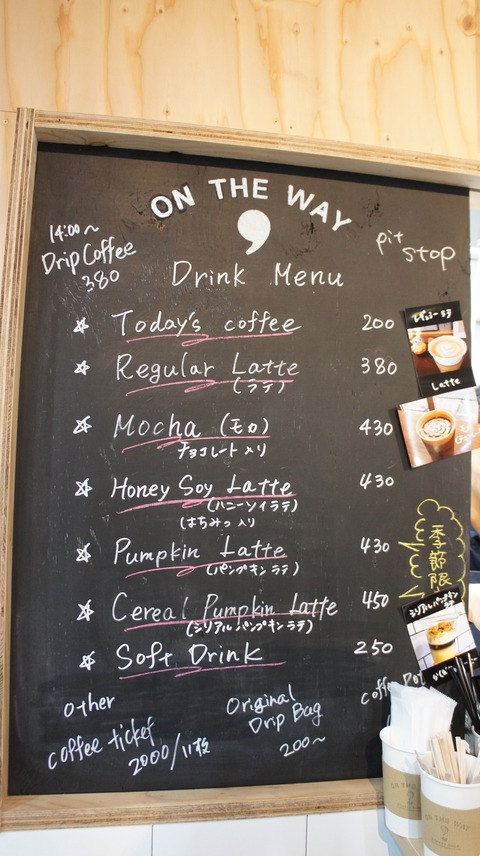 ON THE WAY
14:00~
Drip Coffee
380
pit stop
Drink Menu
☆ Today's coffee 200
☆ Regular Latte 380
(ラテ)
☆ Mocha (モカ) 430
チョコレート入り
☆ Honey Soy Latte 430
(ハニーソイラテ)
(はちみつ入り
☆ Pumpkin Latte 430
(パンプキンラテ)
☆ Cereal Pumpkin Latte 450
(シリアルパンプキンラテ)
☆ Soft Drink 250
Latte
季節限
シリアルパンプキン
ラテ
other
coffee ticket
2000/11枚
Original
Drip Bag
200~
coffee
ON THE WAY
ON THE WAY